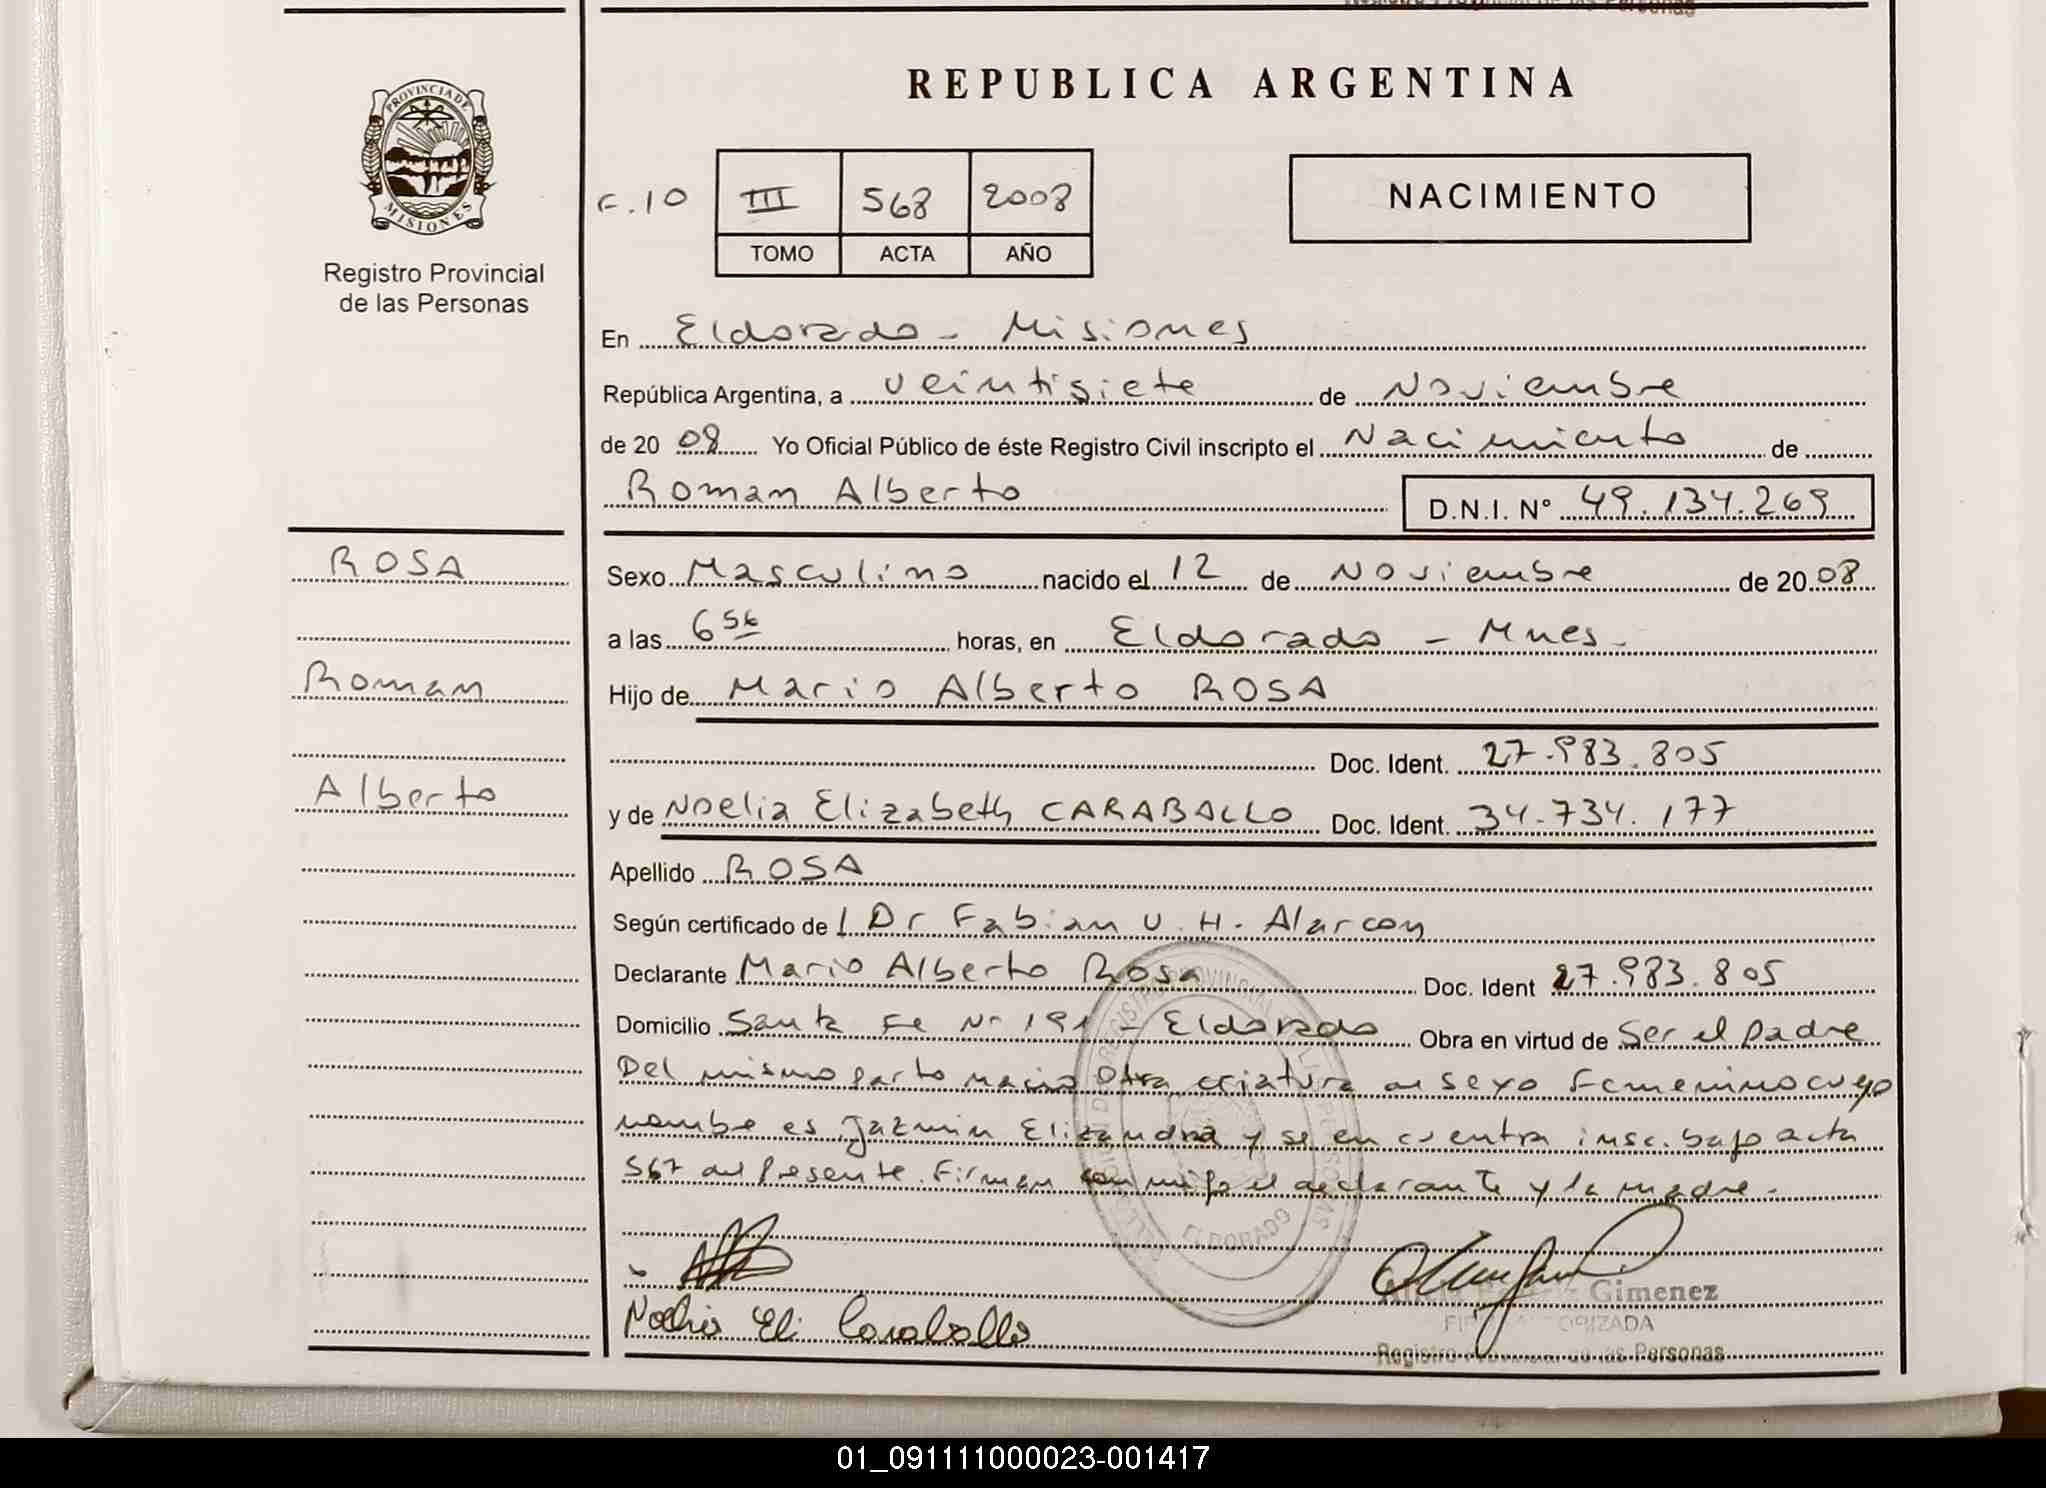 REPUBLICA ARGENTINA
PROVINCIA DE MISIONES
Registro Provincial
de las Personas
F. 10 III 568 2008
TOMO ACTA AÑO
NACIMIENTO
En Eldorado - Misiones
República Argentina, a veintisiete de Noviembre
de 20 08 Yo Oficial Público de éste Registro Civil inscripto el Nacimiento de
Roman Alberto D.N.I. N° 49.134.269
ROSA
Roman
Alberto
Sexo Masculino nacido el 12 de Noviembre de 20 08
a las 6 56 horas, en Eldorado - Mnes.
Hijo de Mario Alberto ROSA
Doc. Ident. 27.983.805
y de Noelia Elizabeth CARABALLO Doc. Ident. 34.734.177
Apellido ROSA
Según certificado de Dr Fabian U. H. Alarcon
Declarante Mario Alberto Rosa Doc. Ident 27.983.805
Domicilio Santa Fe Nº 191 - Eldorado Obra en virtud de Ser el padre
Del mismo parto nacio Otra criatura de sexo Femenino cuyo
nombre es Jazmin Elizandra y se encuentra insc. bajo acta
567 del presente. Firman conmigo el declarante y la madre.
Noelia Eli Caraballo
Gimenez
Registro Provincial de las Personas
ELDORADO
01_091111000023-001417